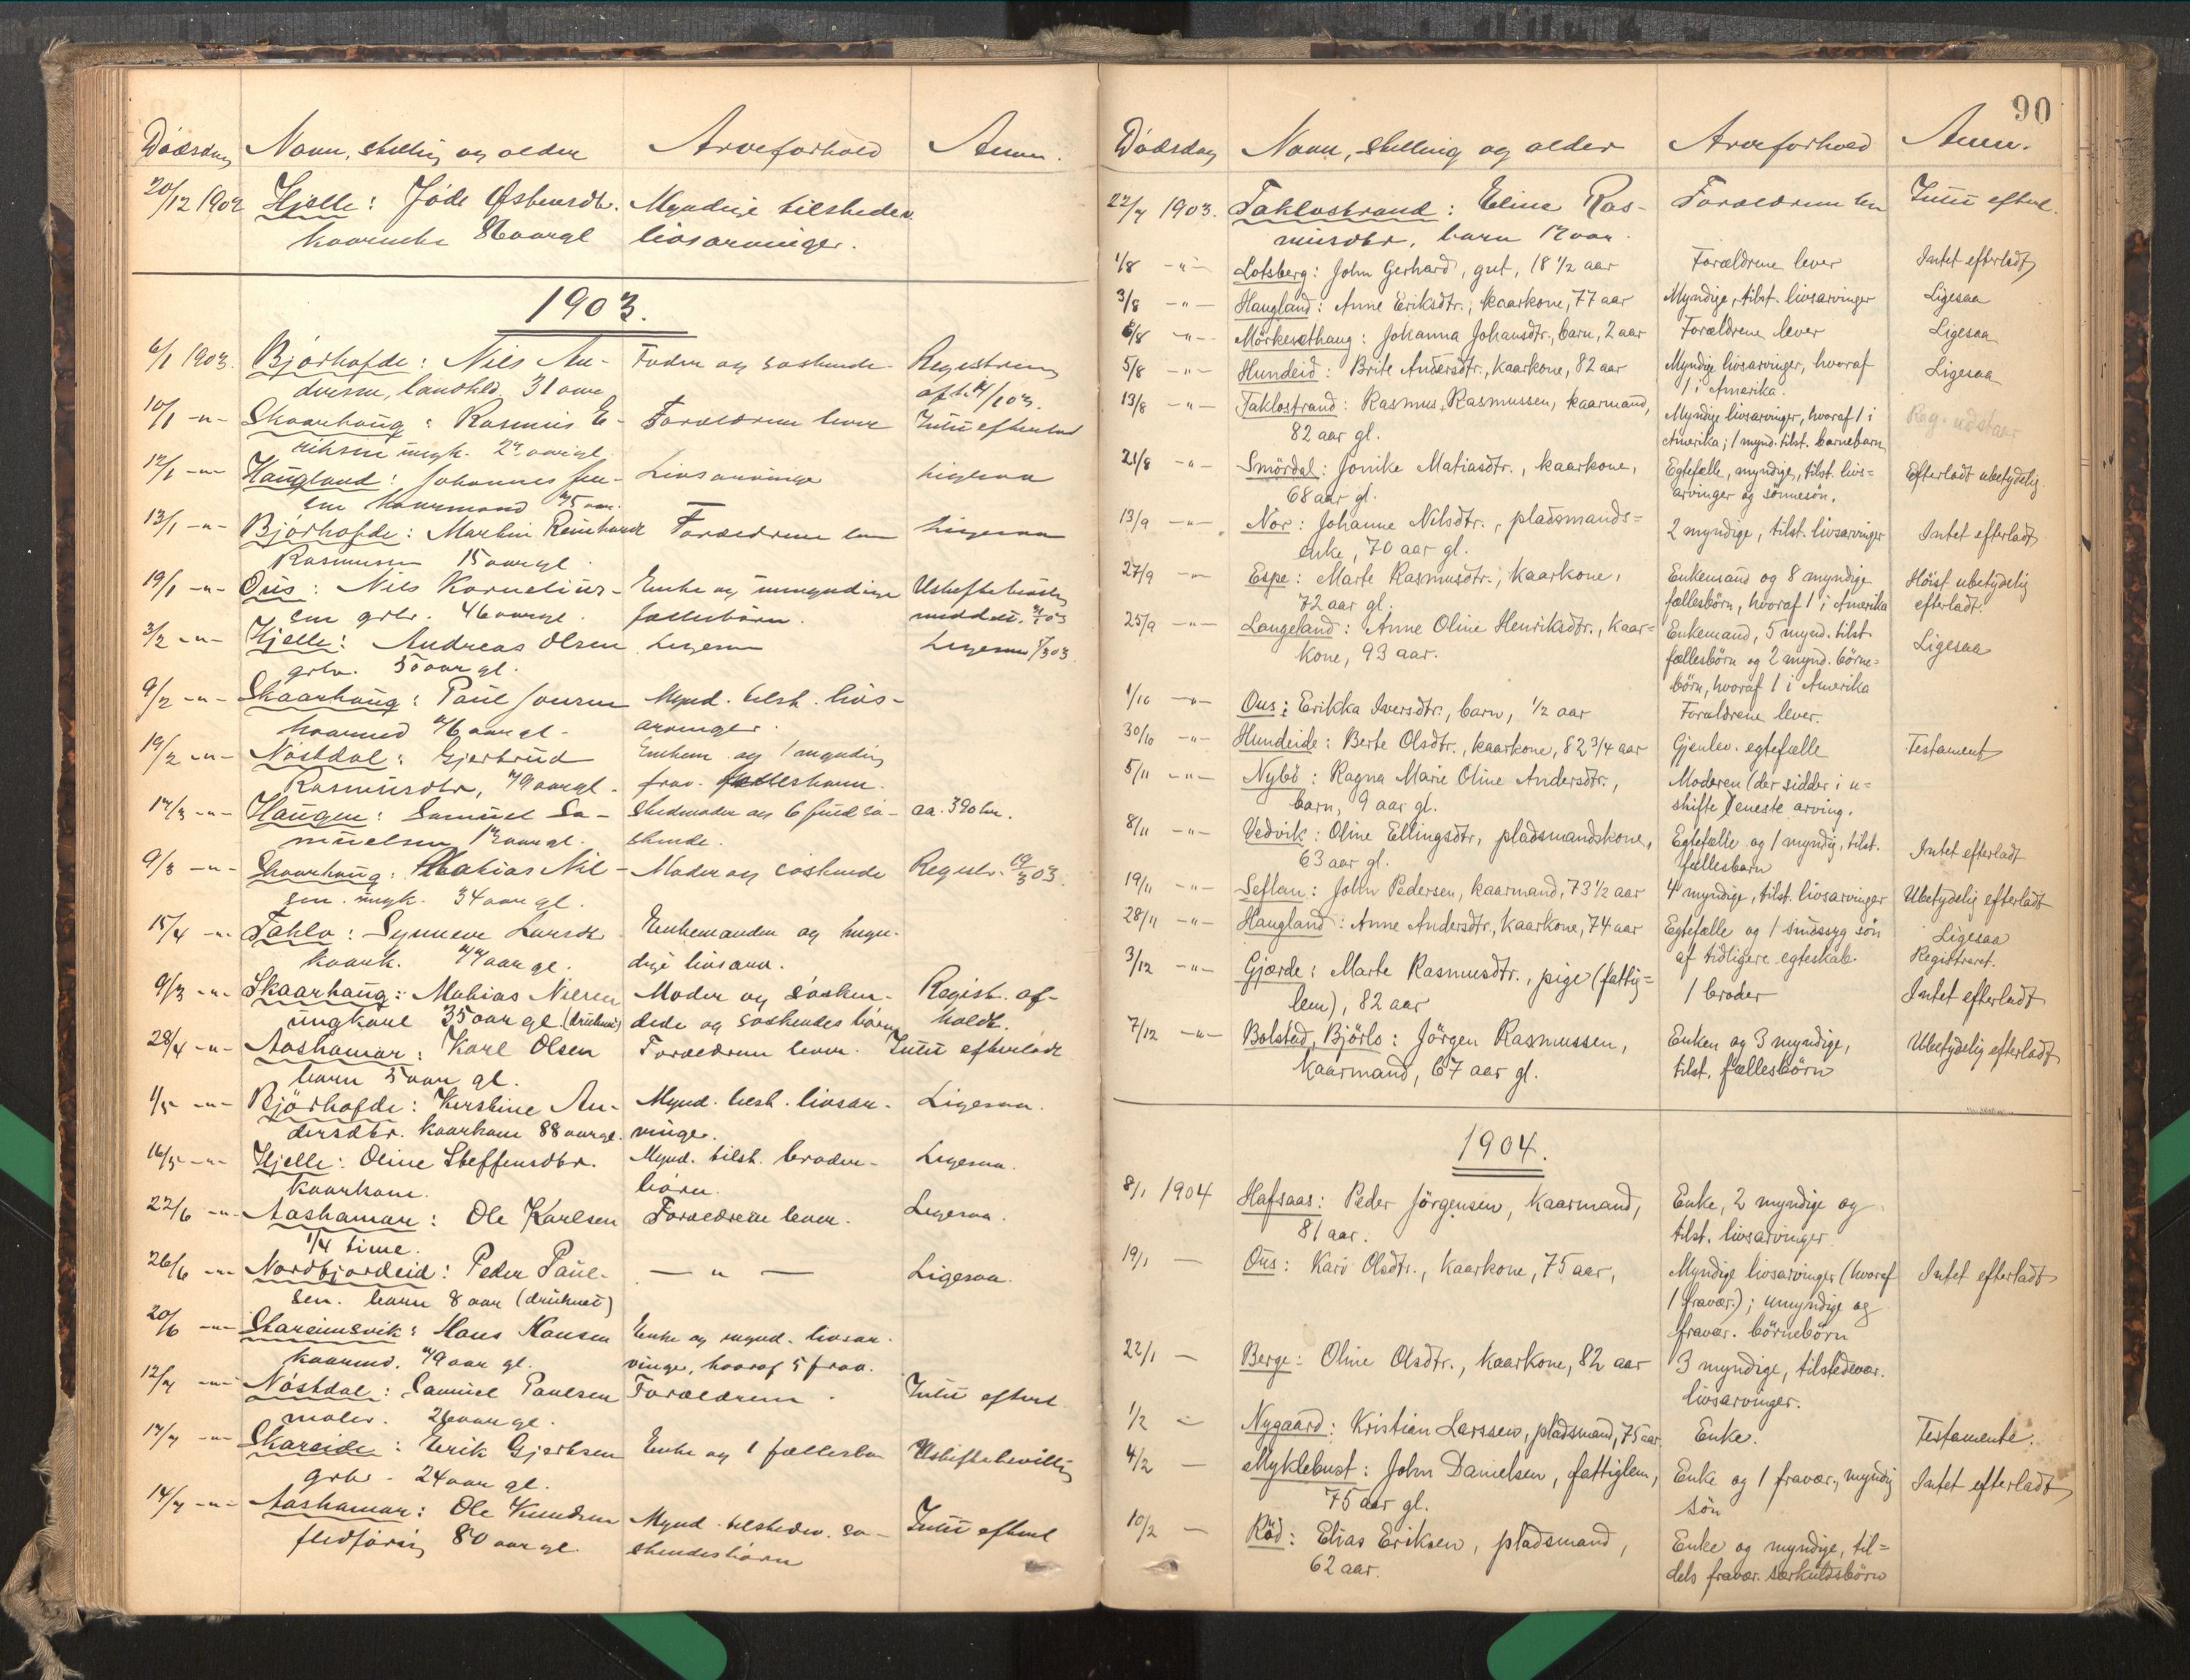 Dödsdag Navn, stilling og alder Arveforhold Anm.
20/12 1902 Hjelle: Jøde Østensdtr. Myndige tilsteder.
kaarenke 86 aar gl livsarvinger.
1903.
6/1 1903. Bjørhofde: Nils An- Fader og søskende. Registrering
dersen, 31 aar afh.
10/1 -"- Skaarhaug: Rasmus E- Forældrene lever Intet efterlad
riksen ungk. aar gl.
12/1 -"- Haugland: Johannes Jen- Livsarvinger Ligesaa
sen kaarmand 75 aar.
13/1 -"- Bjørhofde: Martin Reinhardt Forældrene lever Ligesaa
Rasmussen 15 aar gl.
19/1 -"- Ous: Nils Kornelius- Enke og umyndige Uskiftebevilling
sen grbr. 46 aar gl. fællesbörn. meddelt.
3/2 -"- Hjelle: Andreas Olsen Ligesaa Ligesaa
grbr. 55 aar gl.
9/2 -"- Skaarhaug: Paul Jonsen Mynd. tilst. livs-
kaarmd 76 aar gl. arvinger.
19/2 -"- Nøstdal: Gjertrud Enkem. og 1 myndig
Rasmusdtr, 79 aar gl. frav.
17/3 -"- Haugen: Samuel Sa- Stedmoder og 6 sø- aa. 390 kr.
muelsen aar gl. skende.
9/3 -"- Skaarhaug: Mathias Nil- Moder og søskende Registr. 19/3 03.
sen. ungk. 34 aar gl.
15/4 -"- Taklo: Synneve Larsdtr Enkemanden og myn-
kaark. 77 aar gl. dige livsarv.
9/3 -"- Skaarhaug: Mathias Nilsen Moder og søsken- Registr. af-
ungkarl 35 aar gl. (druknet) dede og søskendes börn holdt.
28/4 -"- Aashamar: Karl Olsen Forældrene lever. Intet efterladt
barn 5 aar gl.
1/5 -"- Bjørhofde: Kerstine An- Mynd. tilst. livsar- Ligesaa.
dersdtr. kaarkone 88 aar gl. vinger.
16/5 -"- Hjelle: Oline Steffensdtr. Mynd. tilst. broder- Ligesaa.
kaarkone. börn.
22/6 -"- Aashamar: Ole Karlsen Forældrene lever. Ligesaa.
1/4 time.
26/6 -"- Nordfjordeid: Peder Paul- — " — Ligesaa.
sen. barn 8 aar (druknet)
20/6 -"- Stareimsvik: Hans Hansen Enke og mynd. livsar-
kaarmd. 79 aar gl. vinger, hvoraf 5 frav.
12/7 -"- Nøstdal: Samuel Paulsen Forældrene. Intet efterl.
maler. 26 aar gl.
17/7 -"- Skareide: Erik Gjertsen Enke og 1 fællesbarn Uskiftebevilling
grbr. 24 aar gl.
14/7 -"- Aashamar: Ole Knudsen Mynd. tilsteder. sø- Intet efterl
fledføring 80 aar gl. skendesbörn
90
Dödsdag Navn, stilling og alder Arveforhold Anm.
22/7 1903. Taklostrand: Eline Ras- Forældrene lev Intet efterl.
musdtr, barn 12 aar.
1/8 -"- Lotsberg: John Gerhard, gut, 18 1/2 aar Forældrene lever Intet efterladt
3/8 -"- Haugland: Anne Eriksdtr., kaarkone, 77 aar Myndige, tilst. livsarvinger Ligesaa
6/8 -"- Mörkesethaug: Johanna Johansdtr., barn, 2 aar Forældrene lever Ligesaa
5/8 -"- Hundeid: Brite Andersdtr., kaarkone, 82 aar Myndige livsarvinger, hvoraf Ligesaa
1 i Amerika.
13/8 -"- Taklostrand: Rasmus Rasmussen, kaarmand, Myndige livsarvinger, hvoraf 1 i Reg. udstaar
82 aar gl. Amerika; 1 mynd. tilst. barnebarn
21/8 -"- Smördal: Jonike Matiasdtr., kaarkone, Egtefælle, myndige, tilst. livs= Efterladt ubetydelig.
68 aar gl. arvinger og sönnesön.
13/9 -"- Nor: Johanne Nilsdtr., pladsmands= 2 myndige, tilst. livsarvinger Intet efterladt
enke, 70 aar gl.
27/9 -"- Espe: Marte Rasmusdtr., kaarkone, Enkemand og 8 myndige Höist ubetydelig
72 aar gl. fællesbörn, hvoraf 1 i Amerika efterladt.
25/9 -"- Langeland: Anne Oline Henriksdtr., kaar= Enkemand, 5 mynd. tilst. Ligesaa
kone, 93 aar. fællesbörn og 2 mynd. börne=
börn, hvoraf 1 i Amerika
1/10 -"- Ous: Erikka Iversdtr., barn, 1/2 aar Forældrene lever.
30/10 -"- Hundeide: Berte Olsdtr., kaarkone, 82 3/4 aar Gjenlev. egtefælle Testament
5/11 -"- Nybö: Ragna Marie Oline Andersdtr., Moderen (der sidder i u=
barn, 9 aar gl. skifte) eneste arving.
8/11 -"- Vedvik: Oline Ellingsdtr, pladsmandskone, Egtefælle og 1 myndig, tilst. Intet efterladt
63 aar gl. fællesbarn
19/11 -"- Leflan: John Pedersen, kaarmand, 73 1/2 aar 4 myndige, tilst. livsarvinger Ubetydelig efterladt
28/11 -"- Haugland: Anne Andersdtr, kaarkone, 74 aar Egtefælle og 1 sindssyg sön Ligesaa
af tidligere egteskab. Registreret.
3/12 -"- Gjærde: Marte Rasmusdtr., pige (fattig= 1 broder Intet efterladt
lem), 82 aar
7/12 -"- Bolstad, Bjørlo: Jörgen Rasmussen, Enken og 3 myndige, Ubetydelig efterladt
kaarmand, 67 aar gl. tilst. fællesbörn
1904.
8/1 1904 Hafsaas: Peder Jörgensen, kaarmand, Enke, 2 myndige og
81 aar. tilst. livsarvinger
19/1 — Ous: Kari Olsdtr., kaarkone, 75 aar, Myndige livsarvinger (hvoraf Intet efterladt
1 fravær.); umyndige og
fravær. börnebörn
22/1 — Berge: Oline Olsdtr., kaarkone, 82 aar 3 myndige, tilstedevær.
livsarvinger.
1/2 — Nygaard: Kristian Larssen, pladsmand, 75 aar. Enke. Testamente.
4/2 — Myklebust: John Danielsen, fattiglem, Enke og 1 fravær., myndig Intet efterladt
75 aar gl. sön
10/2 — Röd: Elias Eriksen, pladsmand, Enke og myndige, til=
62 aar. dels fravær. særkuldsbörn